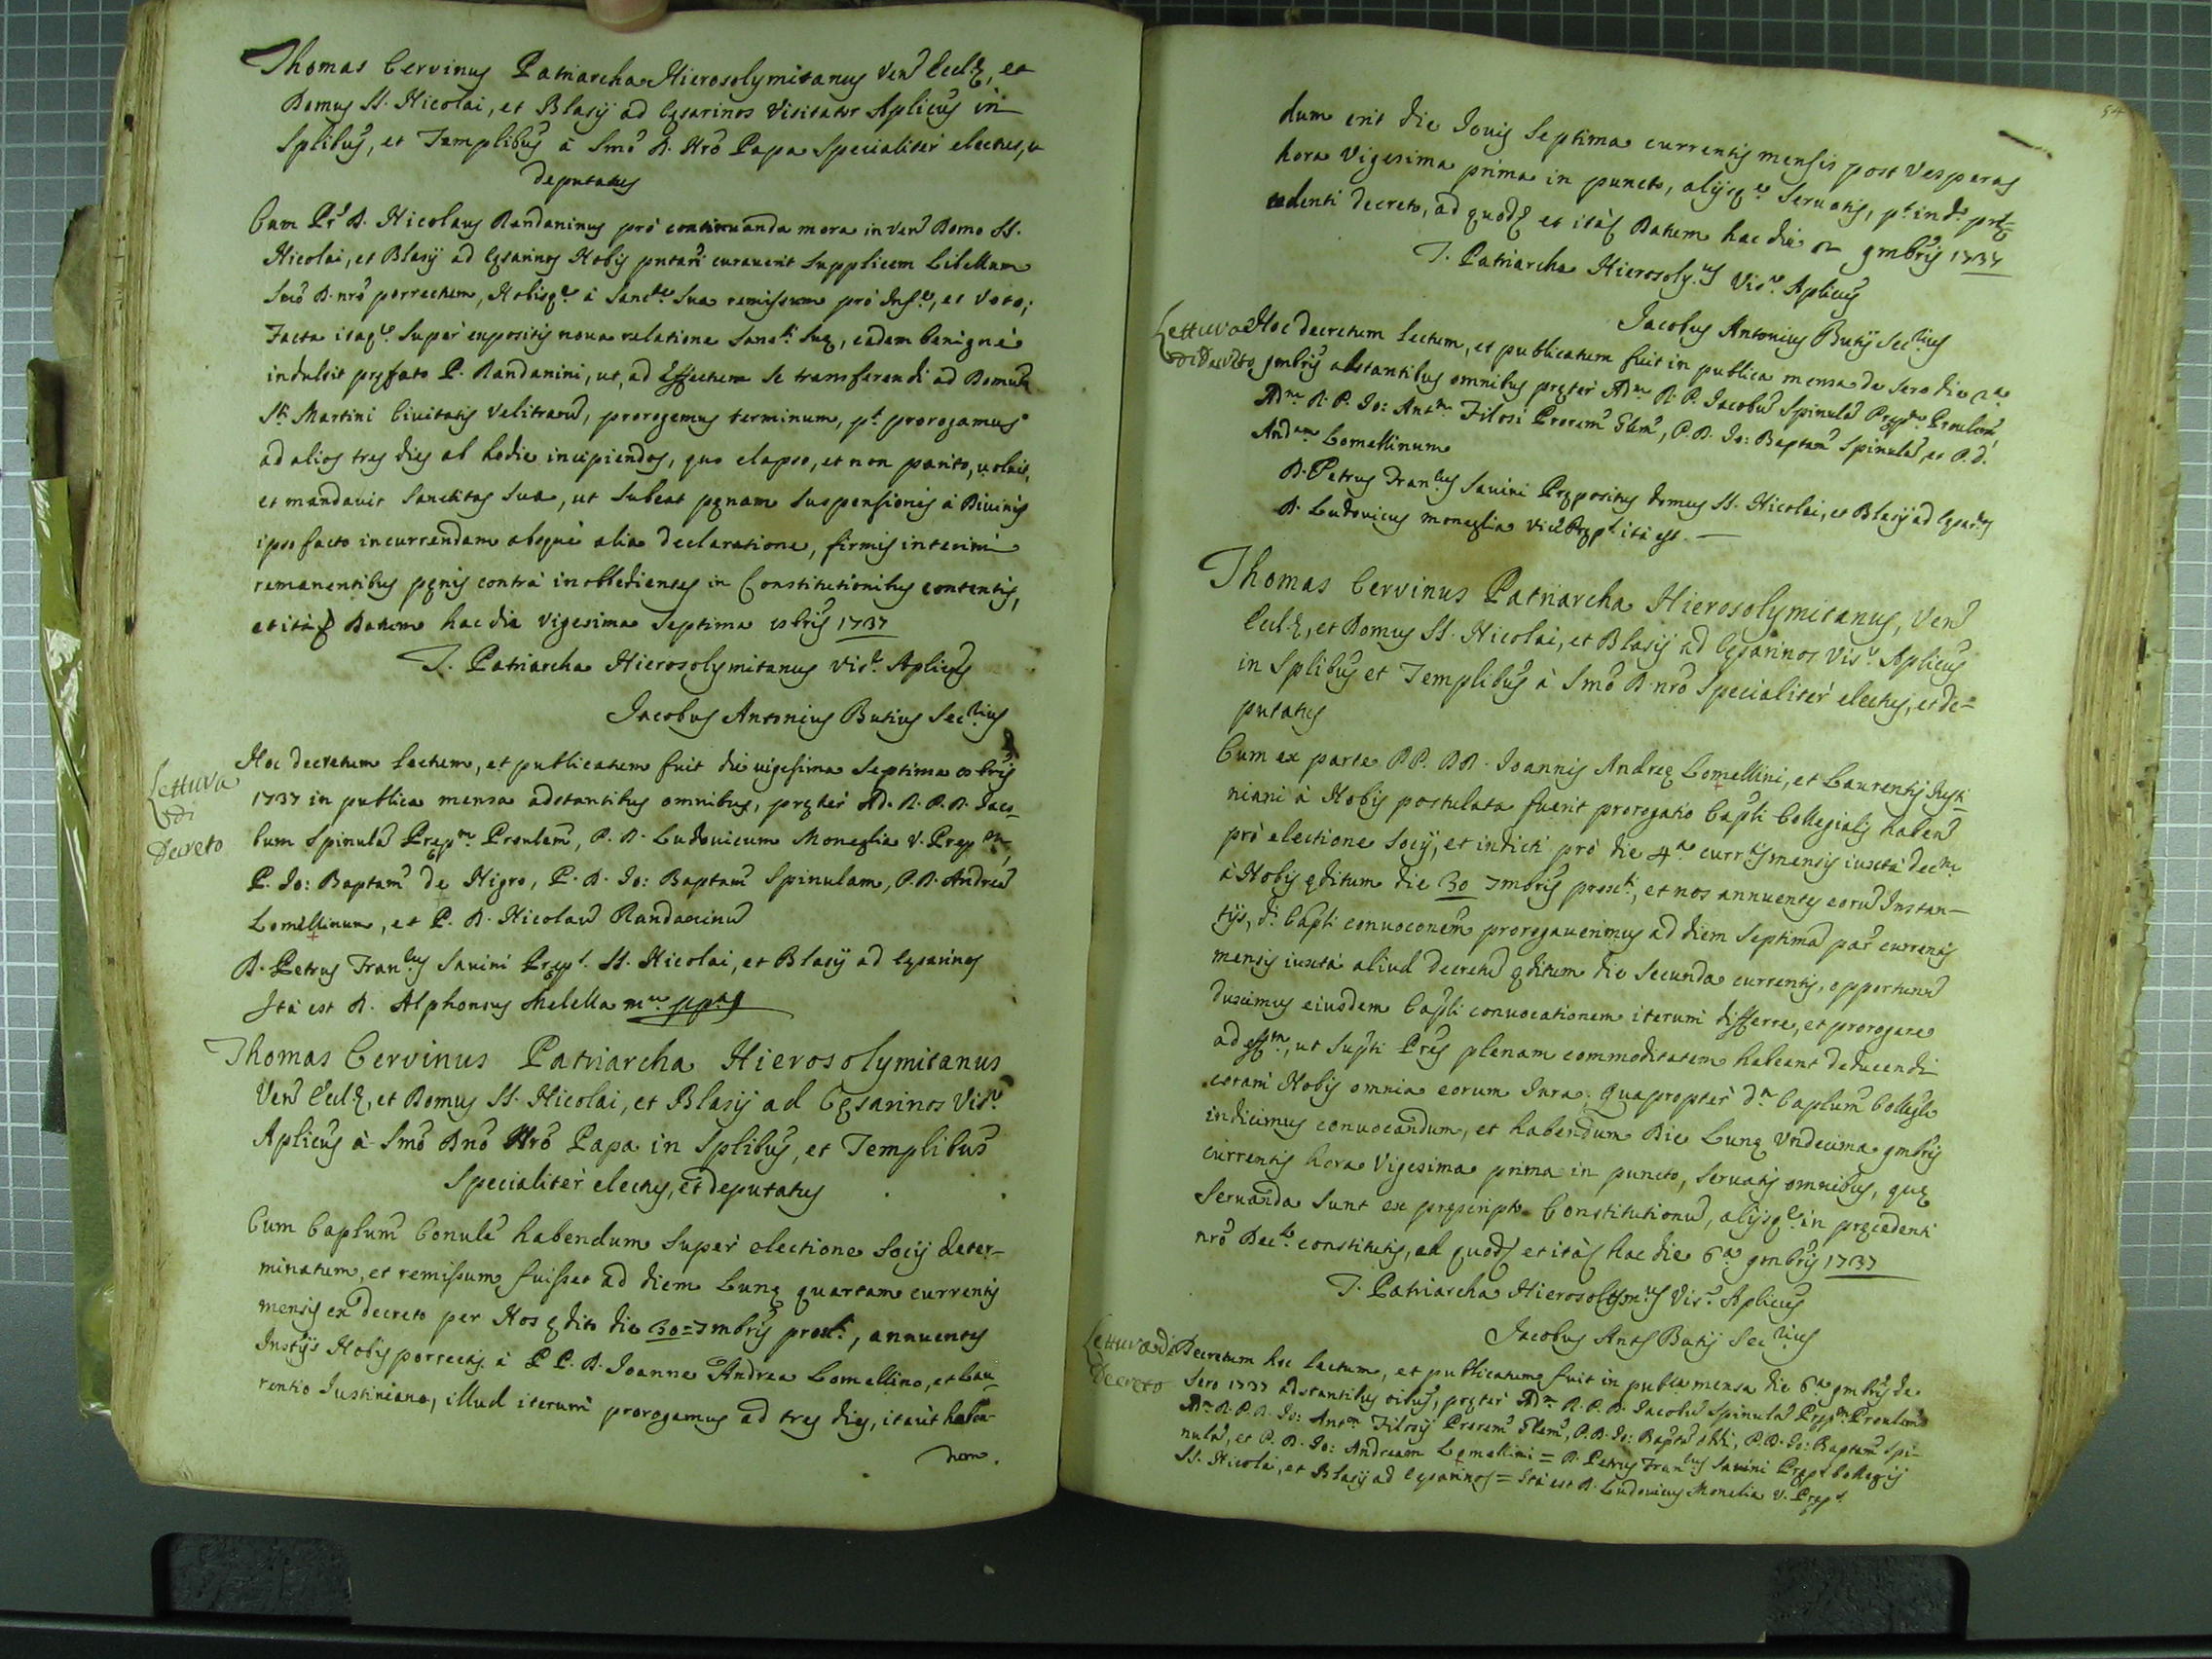 Thomas Cervinus Patriarcha Hierosolymitanus Ven Eccl.ę, et
Domus SS. Nicolai, et Blasij ad Cęsarinos Visitator Aplicus in
Splibus, et Templibus à Smo D. Nro Papa Specialiter electus, et
deputatus
Cum Pr D. Nicolaus Randaninus prò continuanda mora in Ven Domo SS.
Nicolai, et Blasij ad Cęsarinos Nobis pntari curaverit Supplicem Libellum
Smo D. nro porrectum, Nobisq.e à Sanct.e Sua remissum prò Inf.e, et Voto;
Facta itaq.e Super expositis nova relatione Sanct.i Suę, eadem benignè
indulsit pręfato P. Randanini, ut, ad Effectum se transferendi ad Domum
S.ti Martini Civitatis Velitraru, prorogemus terminum, p.t prorogamus
ad alios tres dies ab hodie incipiendos, quo elapso, et non parito, voluit,
et mandavit Sanctitas Sua, ut Subeat pęnam Suspensionis à Divinis
ipso facto incurrendam absquè alia declaratione, firmis interim
remanentibus pęnis contrà inobbedientes in Constitutionibus contentis,
et ità Datum hac die Vigesima Septima 8bris 1737
T. Patriarcha Hierosolymitanus Vis.r Aplicus
Jacobus Antonius Butius Sec.rius
Lettura
di
Decreto
Hoc decretum lectum, et publicatum fuit die vigesima Septima 8bris
1737 in publica mensa adstantibus omnibus, pręter Ad. R. P. D. Jaco-
bum Spinula Pręp.m Pronlem, P. D. Ludovicum Moneglia V. Prep.m,
P. Jo: Baptam de Nigro, P. D. Jo: Baptam Spinulam, P. D. Andrea
Lomellinum, et P. D. Nicolau Randaninu
D. Petrus Fran.cus Savini Pręp.s SS. Nicolai, et Blasij ad Cęsarinos
Ità est D. Alphonsus Melella
Thomas Cervinus Patriarcha Hierosolymitanus
Ven Eccl.ę, et Domus SS. Nicolai, et Blasij ad Cęsarinos Vis.r
Aplicus à Smo Dno Nro Papa in Splibus, et Templibus
Specialitèr electus, et deputatus
Cum Caplum Convle habendum Super electione Socij deter-
minatum, et remissum fuisset ad diem Lunę quartam currentis
mensis ex decreto per Nos ędito die 30=7mbris prox.i, annuentes
Instijs Nobis porrectis à P P. D. Joanne Andrea Lomellino, et Lau-
rentio Justiniano, illud iterum prorogamus ad tres dies, itaut haben-
dum.
54
dum erit die Jovis Septima currentis mensis post Vesperas
hora Vigesima prima in puncto, alijsq.e Servatis, p.t in d.o prę-
cedenti decreto, ad quod et ità Datum hac die 2 9mbris 1737
T. Patriarcha Hierosoly.us Vis.r Aplicus
Jacobus Antonius Butij Sec.rius
Lettura
di Decreto
Hoc decretum lectum, et publicatum fuit in publica mensa de sero die 2.a
9mbris adstantibus omnibus pręter Ad.m R. P. Jacobu Spinula Pręp.m Pronlem,
Ad.m R. P. Jo: Ant.m Filosi Prorem Glem, P. D. Jo: Baptam Spinula, et P. D.
And.am Lomellinum
D. Petrus Fran.cus Savini Prępositus domus SS. Nicolai, et Blasij ad Cęsar.os
D. Ludovicus moneglia Vice Pręp.s ità est.
Thomas Cervinus Patriarcha Hierosolymitanus, Ven
Eccl.ę, et Domus SS. Nicolai, et Blasij ad Cęsarinos Vis.r Aplicus
in Splibus et Templibus à Smo D. nro Specialitèr electus, et de=
putatus
Cum ex parte PP. DD. Joannis Andreę Lomellini, et Laurentij Justi-
niani à Nobis postulata fuerit prorogatio Capli Collegialis haben
prò electione Socij, et indicti prò die 4.a curr.tis mensis iuxtà dec.m
à Nobis ęditum die 30 7mbris prox.i, et nos annuentes eoru Instan-
tijs, d.i Capli convoconem prorogaverimus ad diem Septima par currentis
mensis iuxtà aliud decretu ęditum die Secunda currentis, opportunu
duximus eiusdem Capli convocationem iterum differre, et prorogare
ad eff.m, ut Supti Pres plenam commoditatem habeant deducendi
coram Nobis omnia eorum Jura; Quaproptèr d.m Caplum Colleg.le
indicimus convocandum, et habendum Die Lunę Undecima 9mbris
currentis hora Vigesima prima in puncto, servatis omnibus, quę
Servanda sunt ex pręscripto Constitutionu, alijsq.e in pręcedenti
nro Dec.to constitutis, ad quod et ità hac die 6.a 9mbris 1737
T. Patriarcha Hierosolym.us Vis.r Aplicus
Jacobus Ant. Butij Sec.rius
Lettura di
Decreto
Decretum hoc lectum, et publicatum fuit in publa mensa die 6.a 9mbris de
sero 1737 adstantibus oibus, pręter Ad.m R. P. D. Jacobu Spinula Pręp.m Pronlem
Ad.m R. P. D. Jo: Ant.m Filosij Prorem Glem, P. D. Jo: Bapta, P. D. Jo: Baptam Spi-
nula, et P. D. Jo: Andream Lomellini = D. Petrus Fran.cus Savini Pręp.s Collegij
SS. Nicolai, et Blasij ad Cęsarinos = Ità est D. Ludovicus Monelia V. Pręp.s